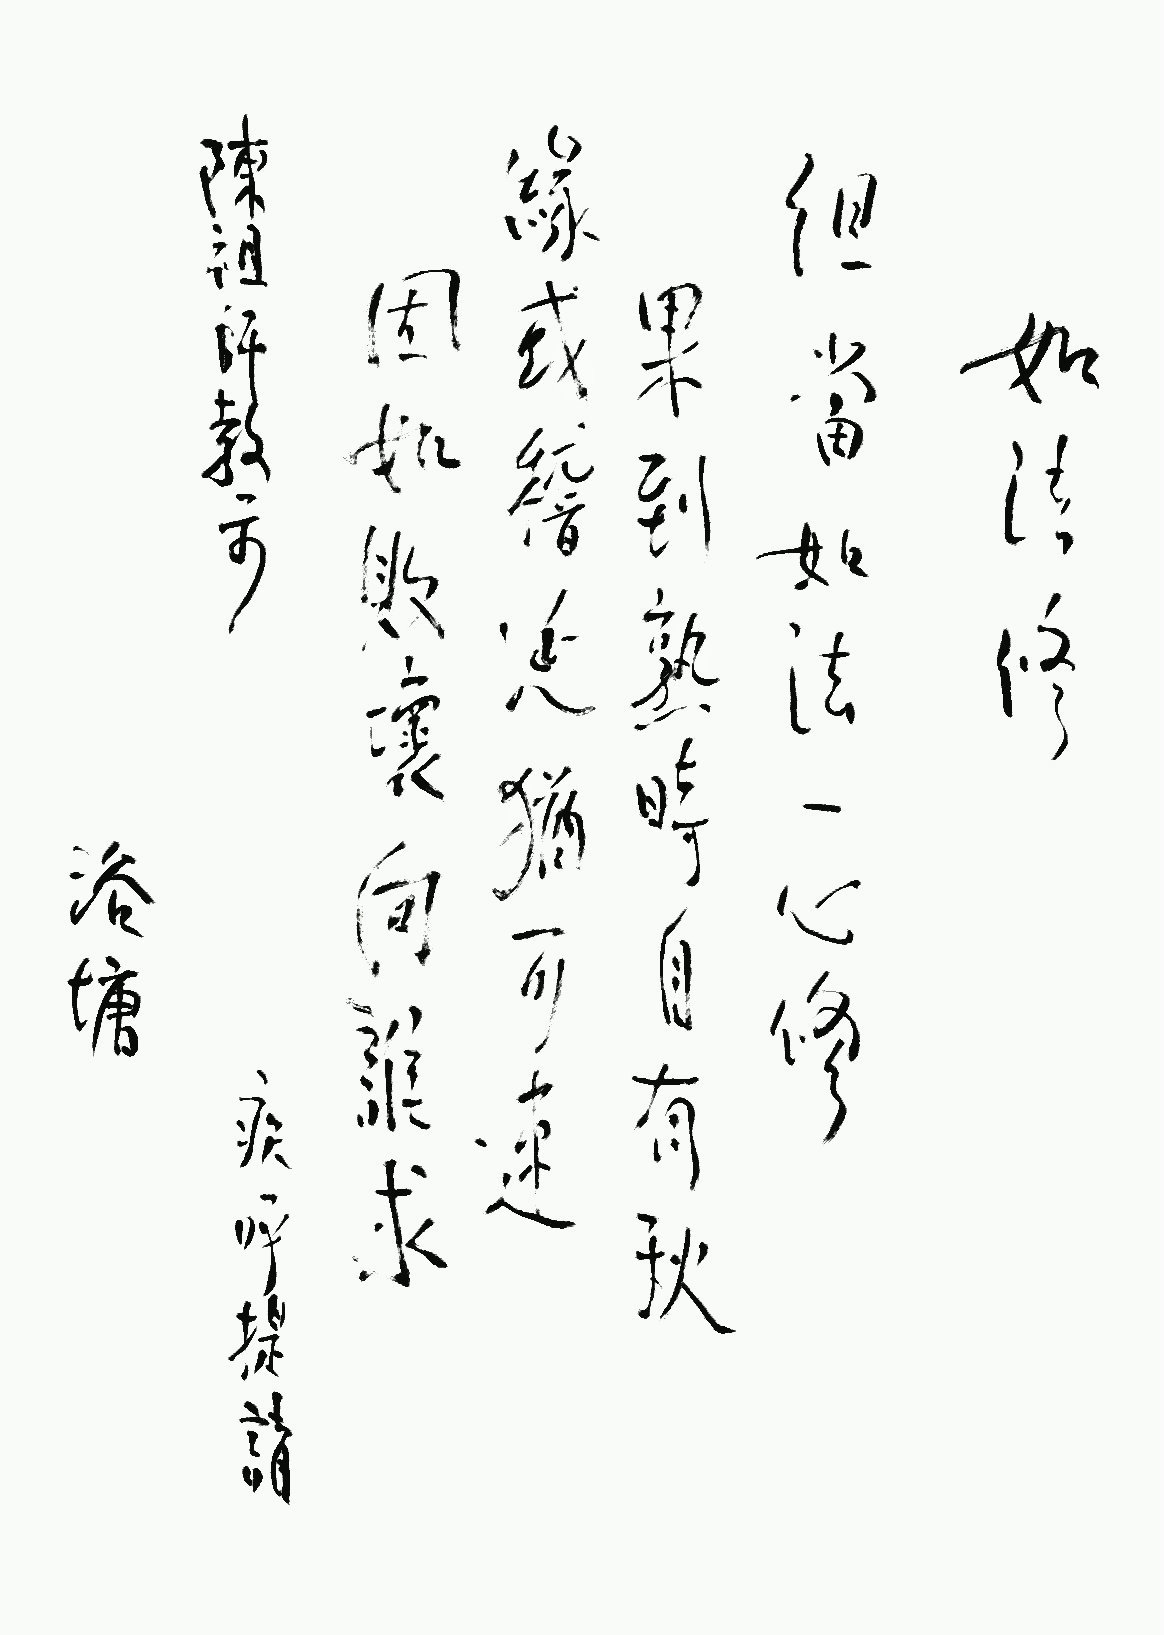 如法修
但當如法一心修
果到熟時自有秋
緣或稽延猶可速
因如敗壞向誰求
陳祖師教示
疾呼提請
浴塘